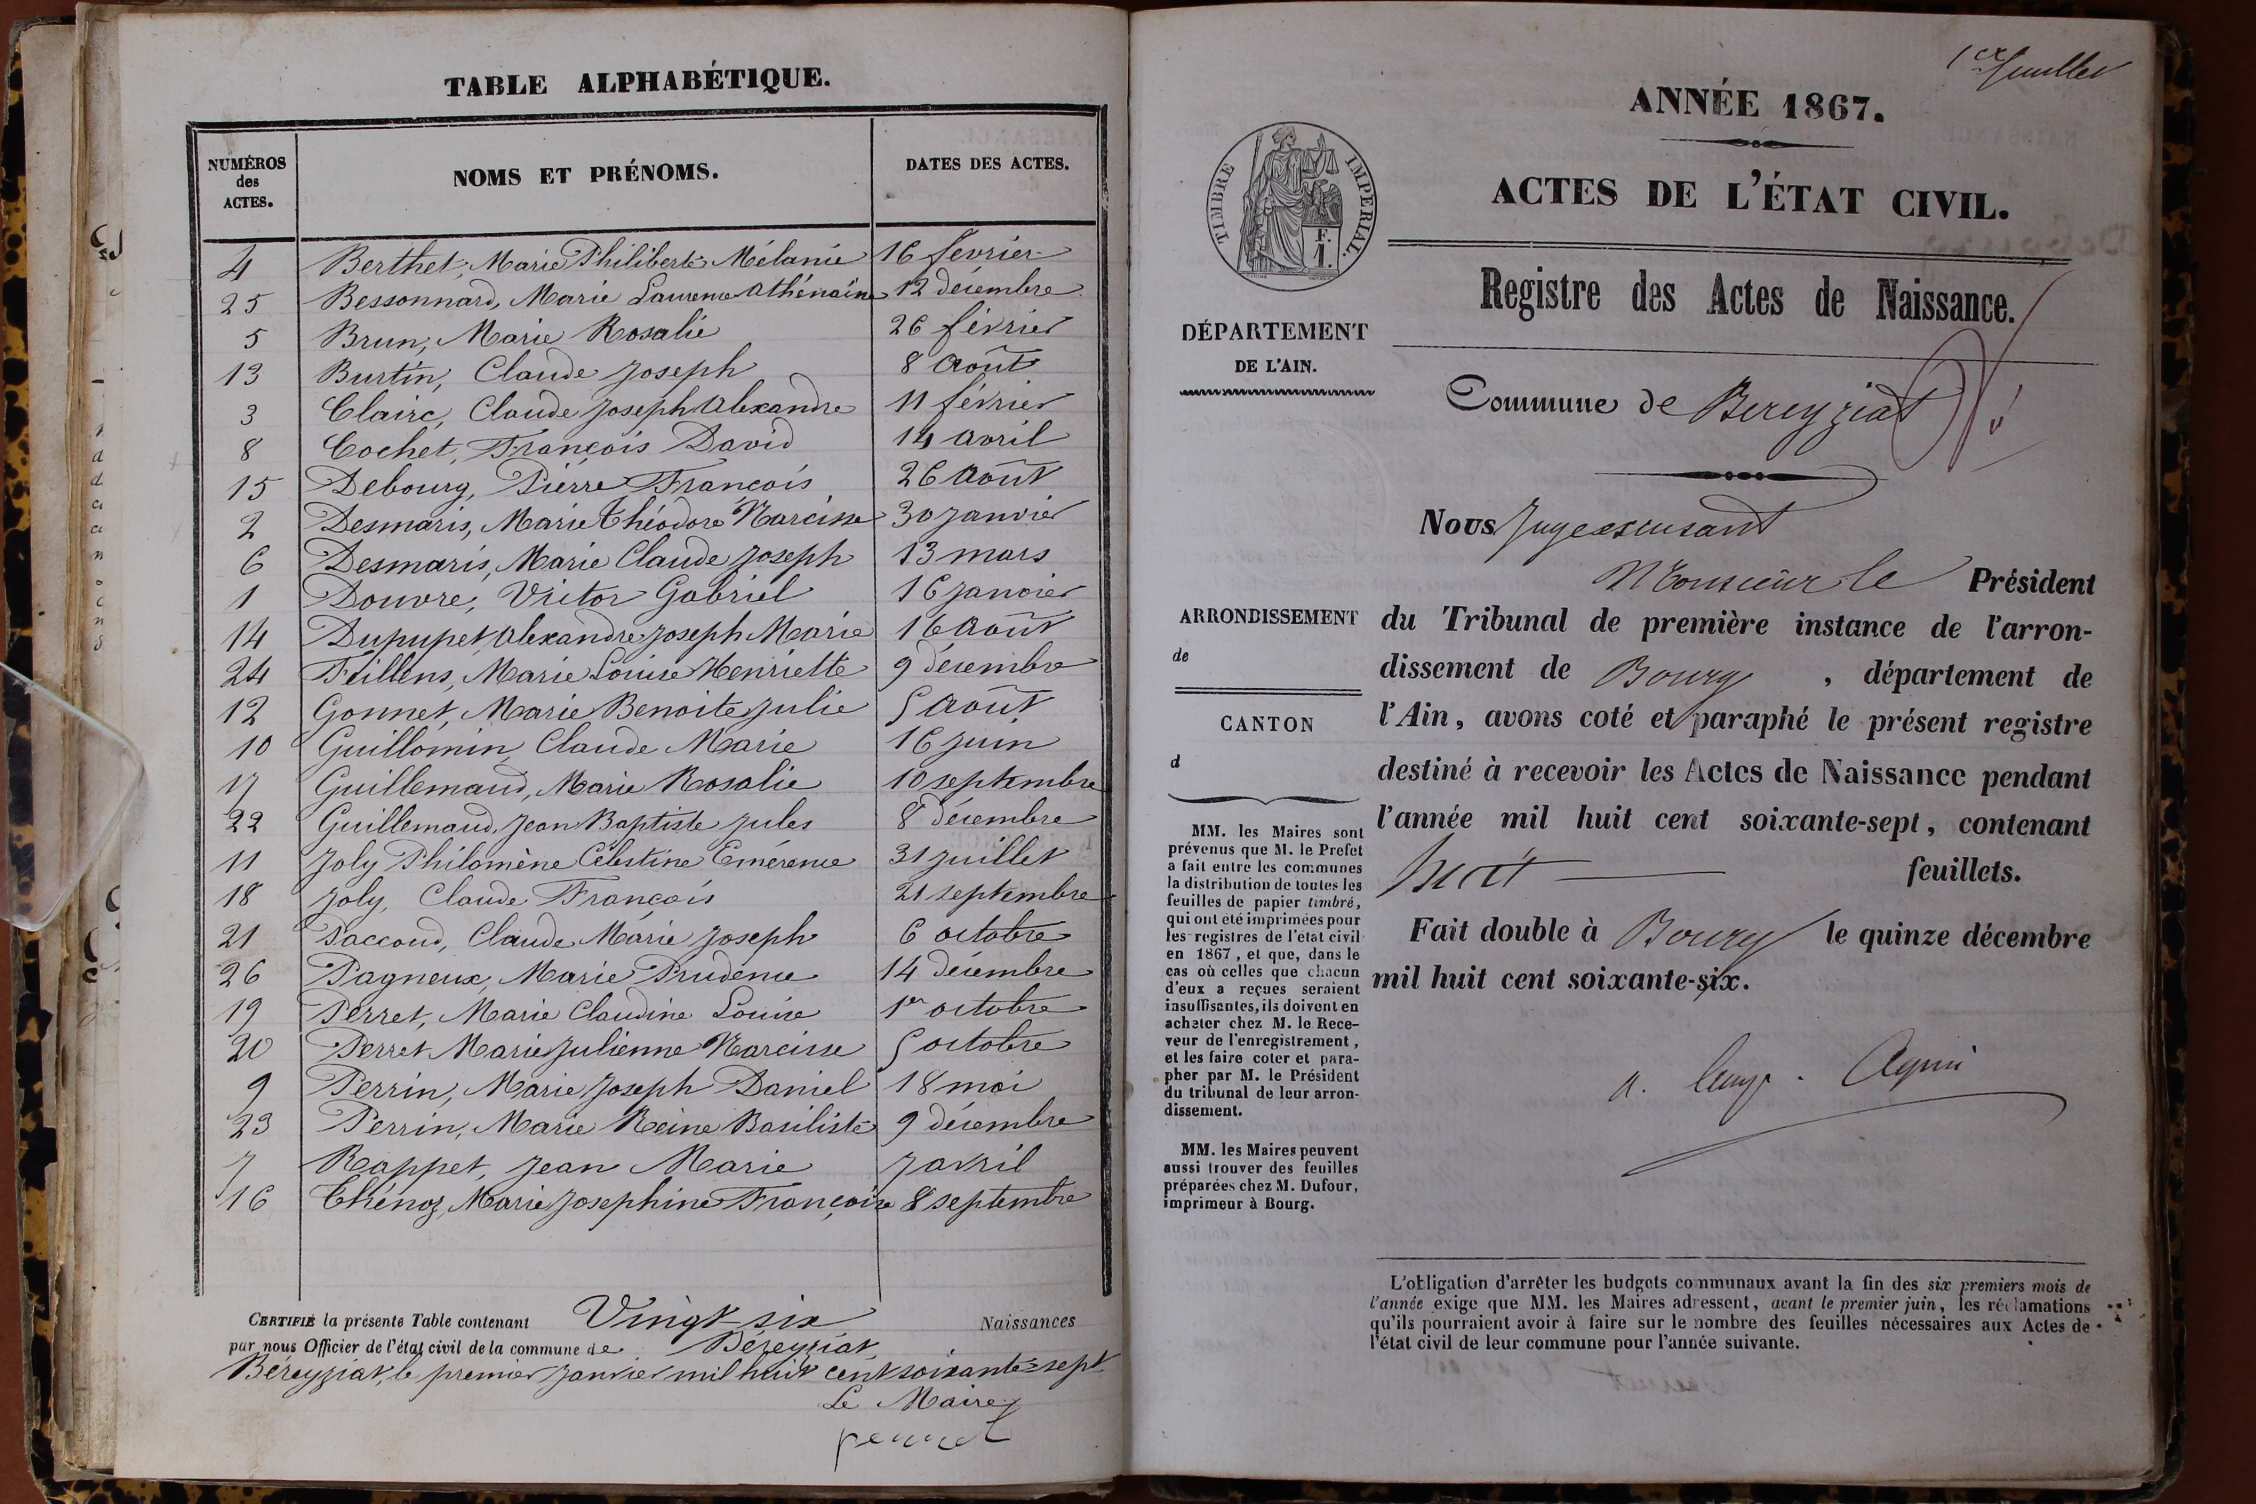 TABLE ALPHABÉTIQUE.
NUMÉROS des ACTES. NOMS ET PRÉNOMS. DATES DES ACTES.
4 Berthet, Marie Philiberte Mélanie 16 fevrier
25 Bessonnard, Marie Laurence Athénaïse 12 décembre
5 Brun, Marie Rosalie 26 février
13 Burtin, Claude Joseph 8 Août
3 Clairc, Claude Joseph Alexandre 11 février
8 Cochet, François David 14 avril
15 Debourg, Pierre François 26 Août
2 Desmaris, Marie Théodore Narcisse 30 janvier
6 Desmaris, Marie Claude Joseph 13 mars
1 Douvre, Victor Gabriel 16 janvier
14 Dupupet, Alexandre Joseph Marie 16 Août
24 Feillens, Marie Louise Henriette 9 décembre
12 Gonnet, Marie Benoite Julie 5 Août
10 Guillomin, Claude Marie 16 juin
17 Guillemaud, Marie Rosalie 10 septembre
22 Guillemaud, Jean Baptiste Jules 8 décembre
11 Joly Philomène Célestine Emérence 31 juillet
18 Joly, Claude François 21 septembre
21 Paccoud, Claude Marie Joseph 6 octobre
26 Pagneux, Marie Prudence 14 décembre
19 Perret, Marie Claudine Louise 1er octobre
20 Perret Marie Julienne Narcisse 5 octobre
9 Perrin, Marie Joseph Daniel 18 mai
23 Perrin, Marie Reine Basiliste 9 décembre
7 Rappet, Jean Marie 7 avril
16 Thénoz, Marie Josephine Françoise 8 septembre
CERTIFIÉ la présente Table contenant Vingt six Naissances
par nous Officier de l'état civil de la commune de Béreyziat
Béreyziat, le premier janvier mil huit cent soixante-sept
Le Maire
1er feuillet
ANNÉE 1867.
ACTES DE L'ÉTAT CIVIL.
TIMBRE IMPERIAL.
F.
1.
Registre des Actes de Naissance.
DÉPARTEMENT
DE L'AIN.
Commune de Bereyziat
Nous Juge excusant
Monsieur le Président
ARRONDISSEMENT
de
CANTON
d
du Tribunal de première instance de l'arron-
dissement de Bourg, département de
l'Ain, avons coté et paraphé le présent registre
destiné à recevoir les Actes de Naissance pendant
l'année mil huit cent soixante-sept, contenant
huit feuillets.
Fait double à Bourg le quinze décembre
mil huit cent soixante-six.
MM. les Maires sont
prévenus que M. le Prefet
a fait entre les communes
la distribution de toutes les
feuilles de papier timbré,
qui ont été imprimées pour
les registres de l'état civil
en 1867, et que, dans le
cas où celles que chacun
d'eux a reçues seraient
insuffisantes, ils doivent en
acheter chez M. le Rece-
veur de l'enregistrement,
et les faire coter et para-
pher par M. le Président
du tribunal de leur arron-
dissement.
MM. les Maires peuvent
aussi trouver des feuilles
préparées chez M. Dufour,
imprimeur à Bourg.
L'obligation d'arrêter les budgets communaux avant la fin des six premiers mois de
l'année exige que MM. les Maires adressent, avant le premier juin, les réclamations
qu'ils pourraient avoir à faire sur le nombre des feuilles nécessaires aux Actes de
l'état civil de leur commune pour l'année suivante.